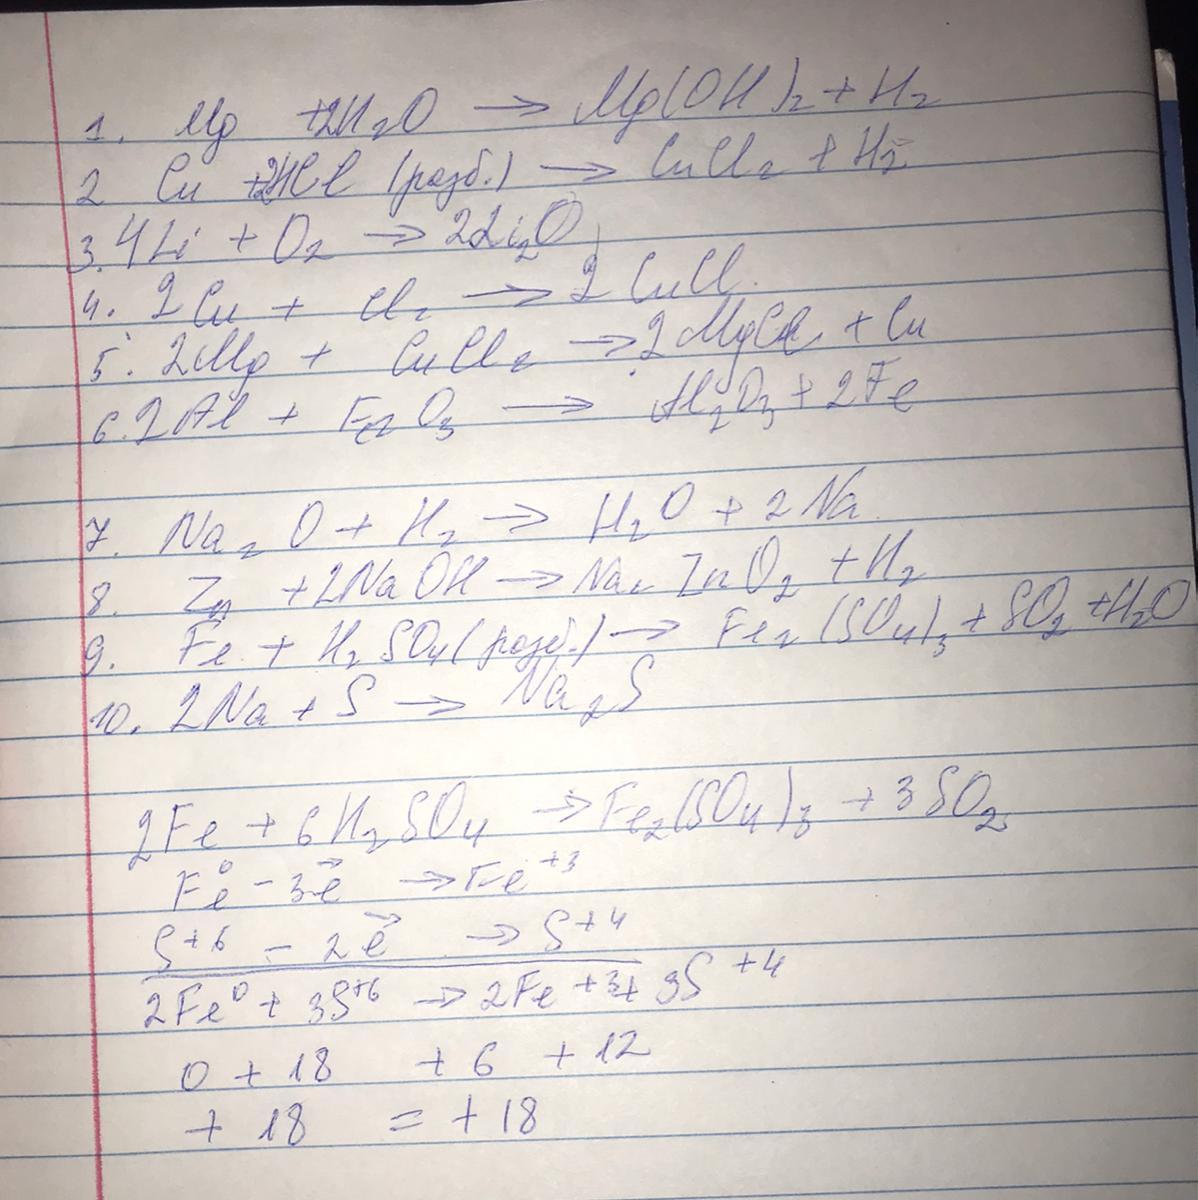 1. Mg +2H₂O → Mg(OH)₂ + H₂
2 Cu +2HCl (разб.) → CuCl₂ + H₂
3. 4Li + O₂ → 2Li₂O
4. 2Cu + Cl₂ → 2 CuCl.
5. 2Mg + CuCl₂ → 2MgCl + Cu
6. 2Al + Fe₂O₃ → Al₂O₃ + 2Fe
7. Na₂O + H₂ → H₂O + 2Na
8. Zn +2NaOH → Na₂ZnO₂ + H₂
9. Fe + H₂SO₄ (разб.) → Fe₂(SO₄)₃ + SO₂ + H₂O
10. 2Na + S → Na₂S
2Fe + 6H₂SO₄ → Fe₂(SO₄)₃ + 3SO₂
Fe⁰ - 3e → Fe⁺³
S⁺⁶ - 2e → S⁺⁴
2Fe⁰ + 3S⁺⁶ → 2Fe⁺³ + 3S⁺⁴
0 + 18 + 6 + 12
+ 18 = + 18